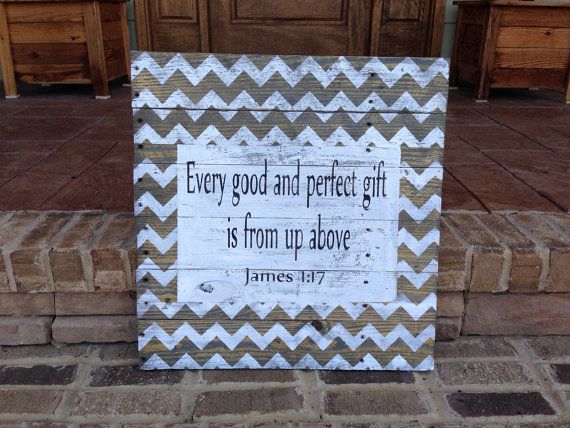 Every good and perfect gift
is from up above
James 1:17